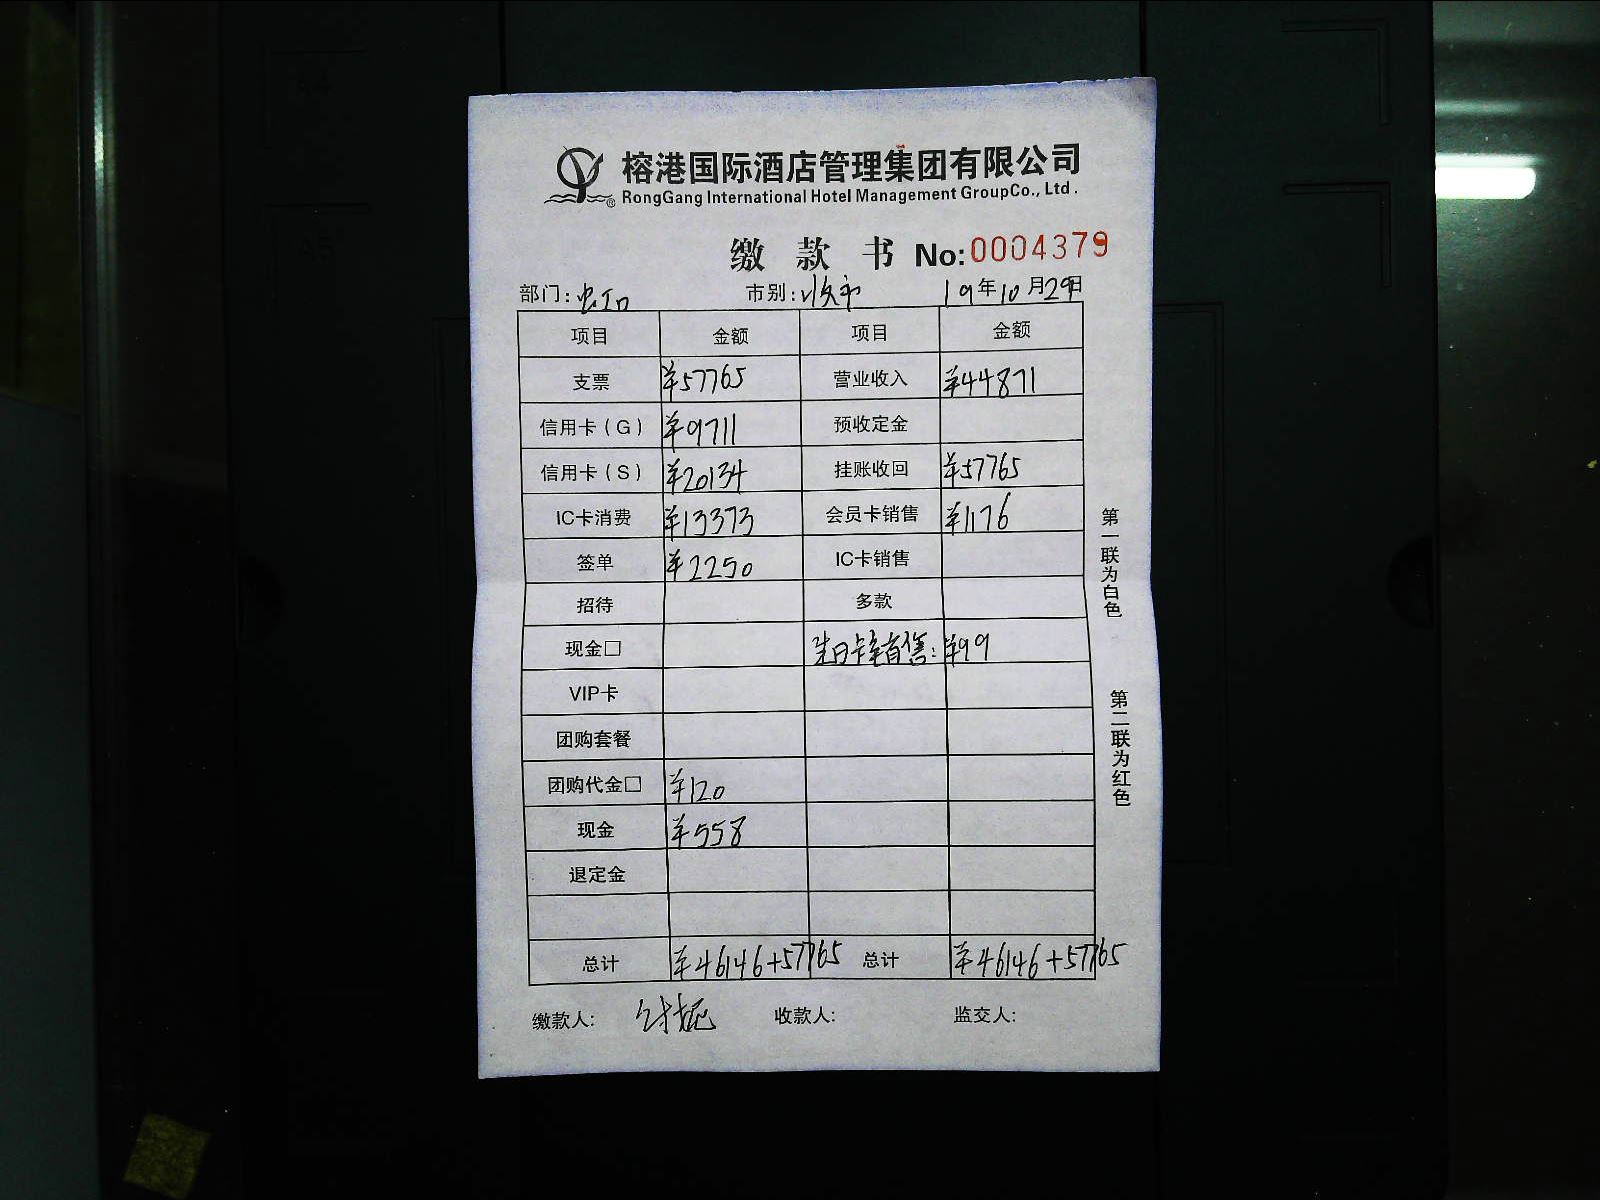 榕港国际酒店管理集团有限公司
RongGang International Hotel Management GroupCo., Ltd.
缴 款 书 No:0004379
部门: 市别: 19年10月29日
项目 金额 项目 金额
支票 ¥57765 营业收入 ¥44871
信用卡(G) ¥9711 预收定金
信用卡(S) ¥20134 挂账收回 ¥57765
IC卡消费 ¥13373 会员卡销售 ¥1176
签单 ¥2250 IC卡销售
招待 多款
现金□ 生日卡售: ¥99
VIP卡
团购套餐
团购代金□ ¥120
现金 ¥558
退定金
总计 ¥46146+57765 总计 ¥46146+57765
缴款人: 收款人: 监交人:
第一联为白色
第二联为红色